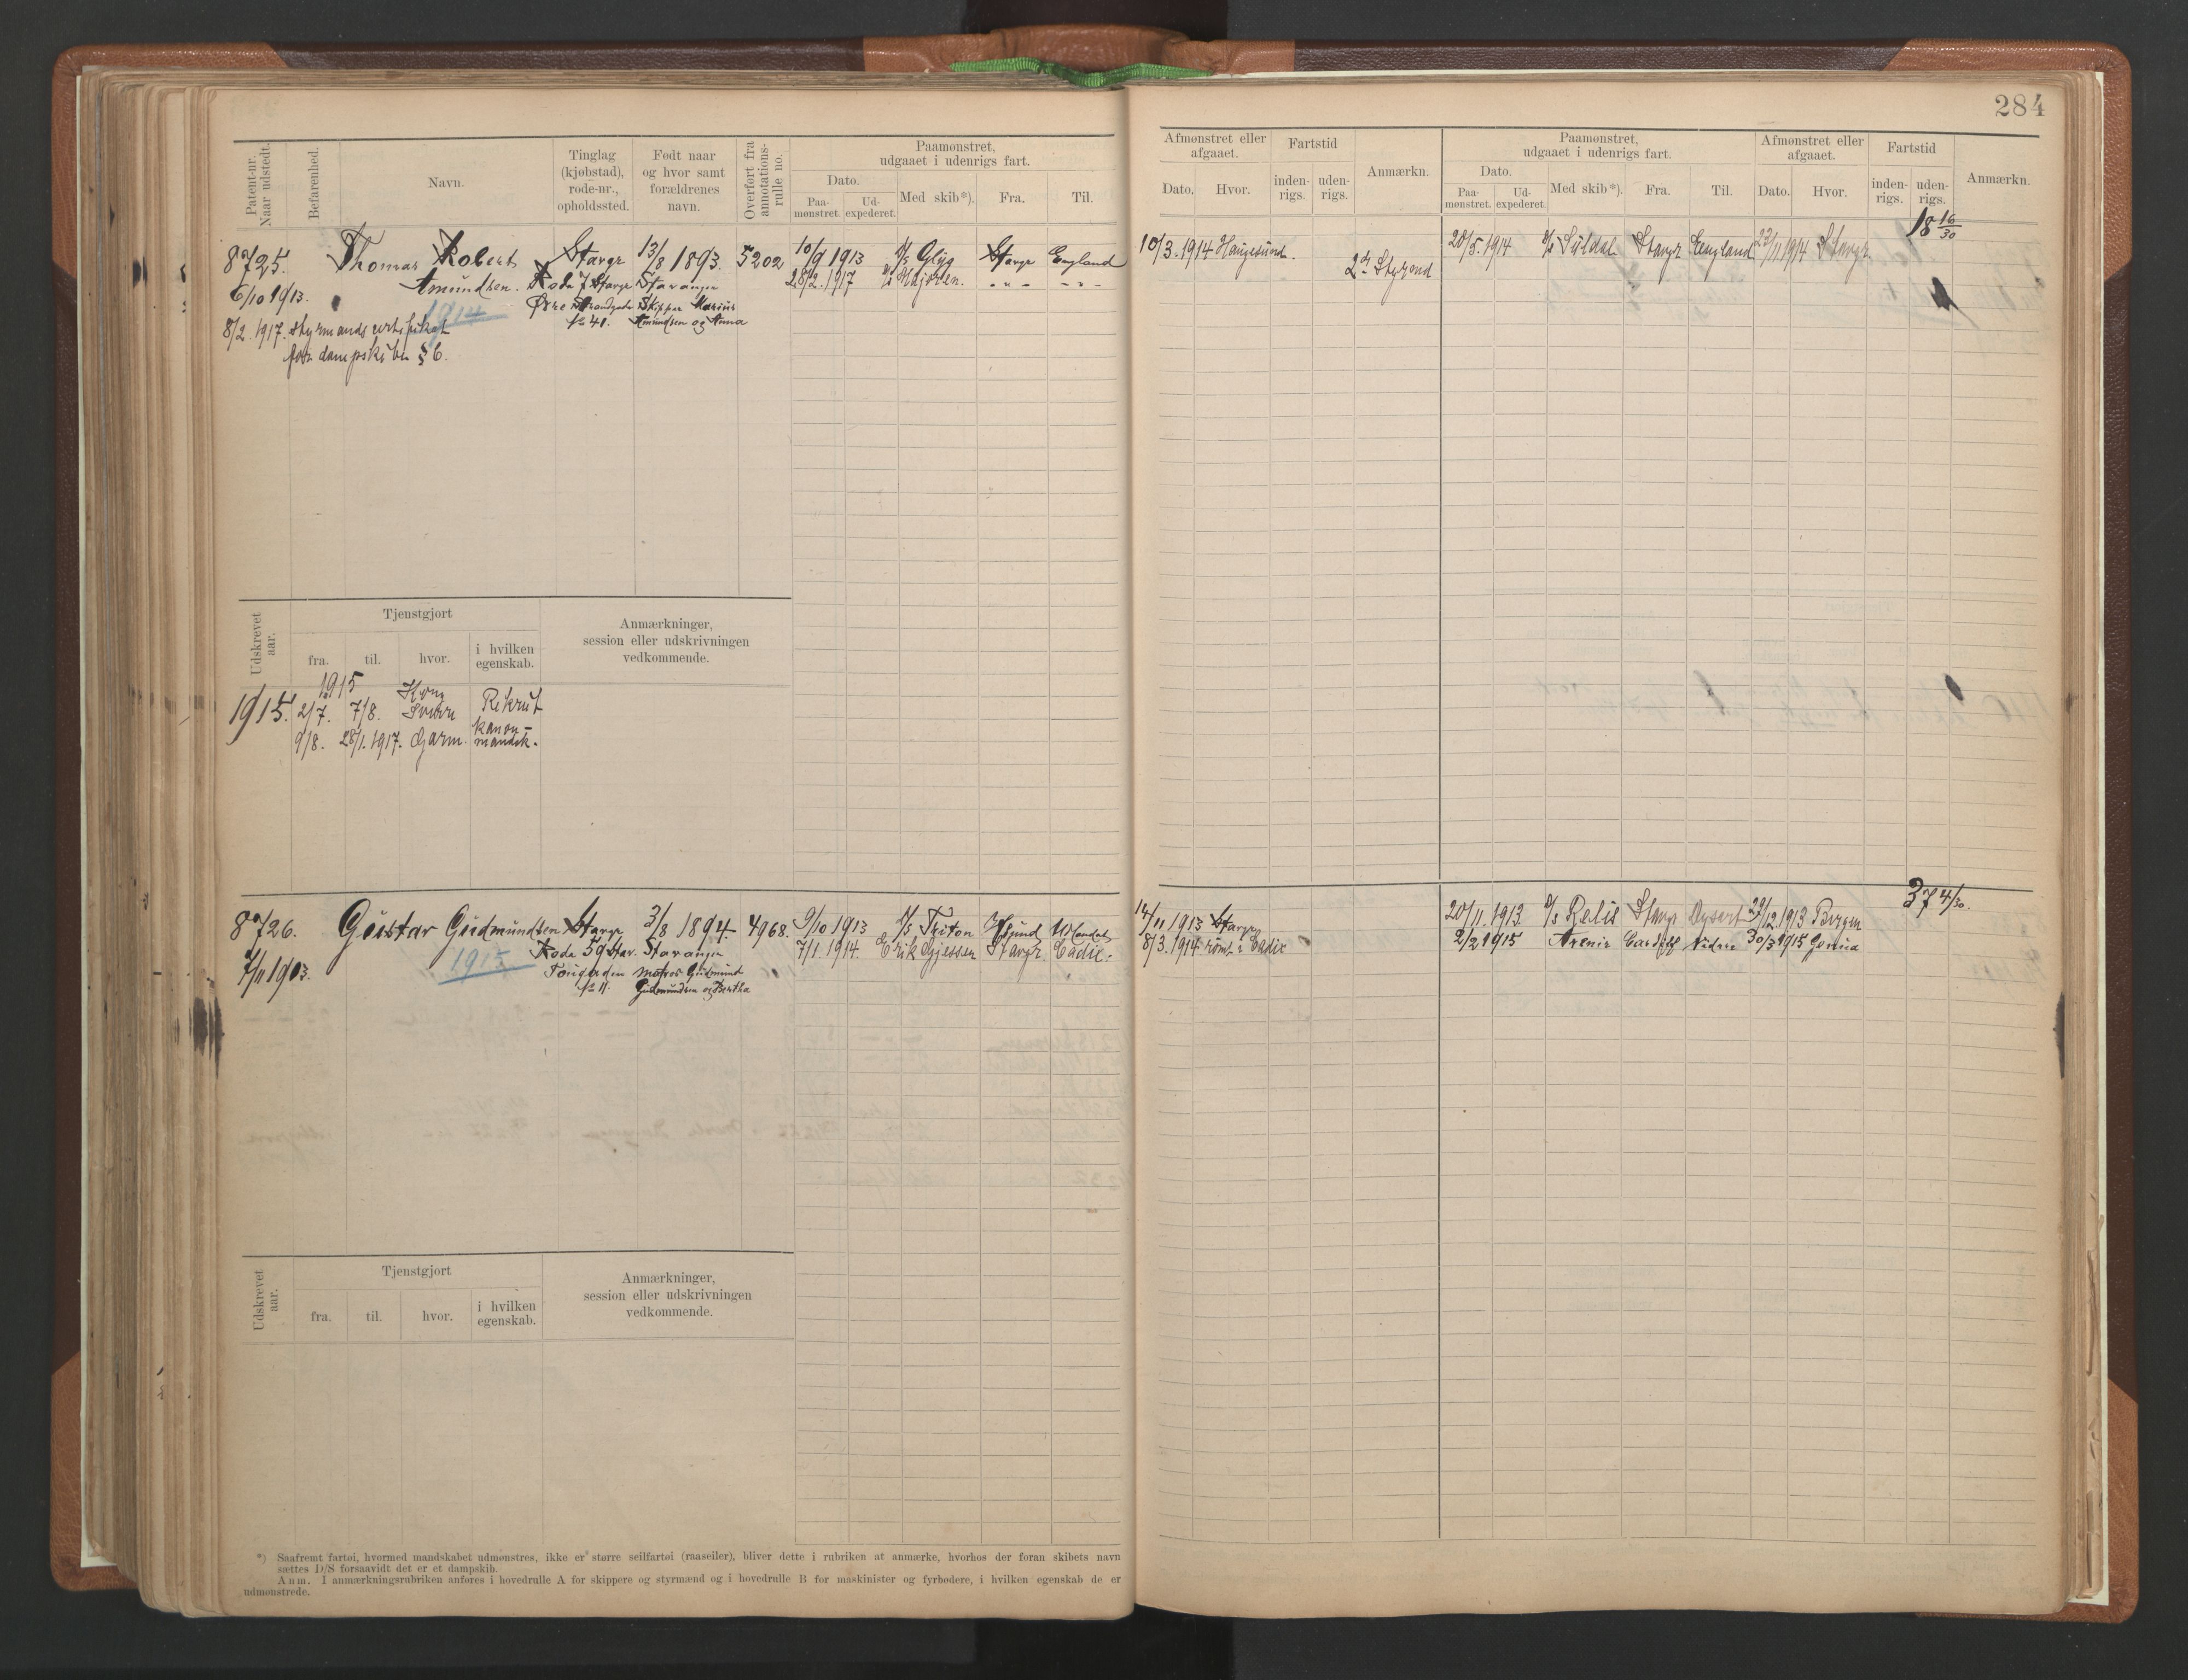 284
Patent-nr.
Naar udstedt.
Befarenhed.
Navn.
Tinglag
(kjøbstad),
rode-nr.,
opholdssted.
Født naar
og hvor samt
forældrenes
navn.
Overført fra
annotations-
rulle no.
Paamønstret,
udgaaet i udenrigs fart.
Dato.
Paa-
mønstret.
Ud-
expederet.
Med skib*).
Fra.
Til.
Afmønstret eller
afgaaet.
Dato.
Hvor.
Fartstid
inden-
rigs.
uden-
rigs.
Anmærkn.
Paamønstret,
udgaaet i udenrigs fart.
Dato.
Paa-
mønstret.
Ud-
expederet.
Med skib*).
Fra.
Til.
Afmønstret eller
afgaaet.
Dato.
Hvor.
Fartstid
inden-
rigs.
uden-
rigs.
Anmærkn.
18 16/30
8725. Thomas Robert Stavgr 13/8 1893. 5202 10/9 1913 D/s Glyg Stavgr England 10/3. 1914 Haugesund. 20/5. 1914 D/s Suldal Stavgr England 23/11 1914 Stavgr
6/10 1913. Amundsen. Rode 7 Stavgr Stavanger 28/2. 1917 - " - - " - 2den Styrmd
1914 Øvre Strandgade Skipper Marius
No 41. Amundsen og Anna
8/2. 1917. Styrmandscertifikat
for dampskibe § 6.
Udskrevet
aar.
Tjenstgjort
fra.
til.
hvor.
i hvilken
egenskab.
Anmærkninger,
session eller udskrivningen
vedkommende.
1915
1915. 2/7. 7/8. Kong Sverre Rekrut
9/8. 28/1. 1917. Gjarm. kanon-
mandsk.
374/30.
8726. Gustav Gudmundsen Stavgr 3/8 1894. 4968. 9/10 1913 D/s Triton Hsund Udlandet 14/11 1913 Stavgr 20/11. 1913 D/s Relis Stavgr Dysart 29/12 1913 Bergen
7/11 1913. 1915 Rode 59 Stav. Stavanger 7/1. 1914. Erik Gjessen Stavgr. Cadix. 8/3. 1914 rømt i Cadix 2/2 1915 Cardiff 30/3 1915 Genua
matros Gudmund
No 11. Gudmundsen og Bertha
Udskrevet
aar.
Tjenstgjort
fra.
til.
hvor.
i hvilken
egenskab.
Anmærkninger,
session eller udskrivningen
vedkommende.
*) Saafremt fartøi, hvormed mandskabet udmønstres, ikke er større seilfartøi (raaseiler), bliver dette i rubriken at anmærke, hvorhos der foran skibets navn
sættes D/S forsaavidt det er et dampskib.
Anm. I anmærkningsrubriken anføres i hovedrulle A for skippere og styrmænd og i hovedrulle B for maskinister og fyrbødere, i hvilken egenskab de er
udmønstrede.